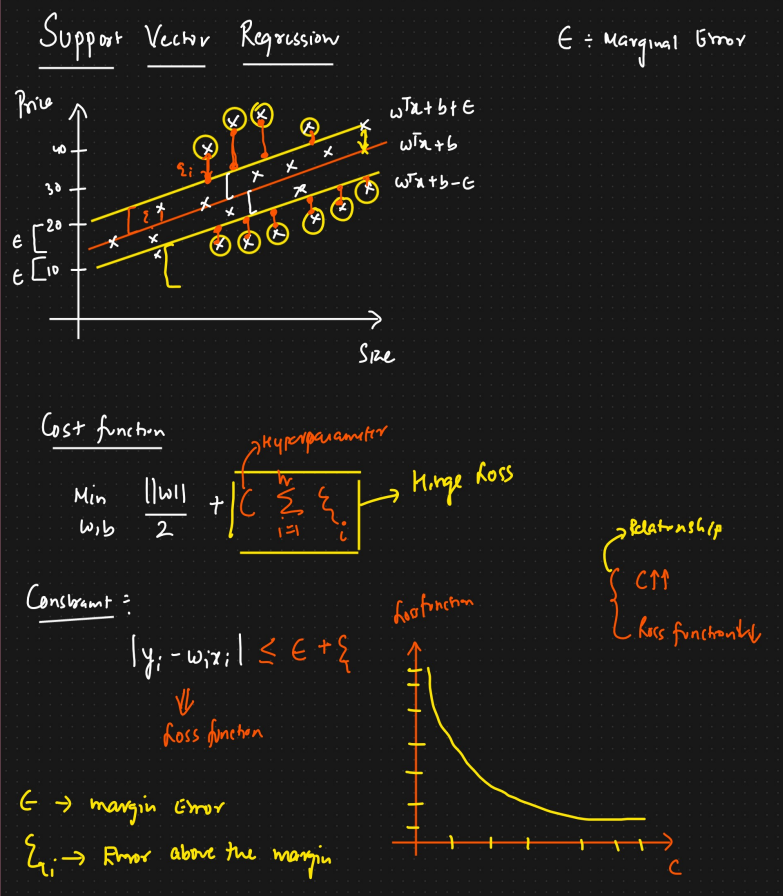 Support Vector Regression
ϵ ÷ Marginal Error
Price
40
30
20
10
ϵ
ϵ
ξi
ξ
wᵀx+b+ϵ
wᵀx+b
wᵀx+b-ϵ
Size
Cost function
Hyperparameter
Min w,b ||w||/2 + C n Σ i=1 ξi
Hinge Loss
Relationship
C↑↑
Loss function↓↓
Constraint :
|yi - wixi| ≤ ϵ + ξ
⇓
Loss function
Loss function
C
ϵ → margin Error
ξi → Error above the margin